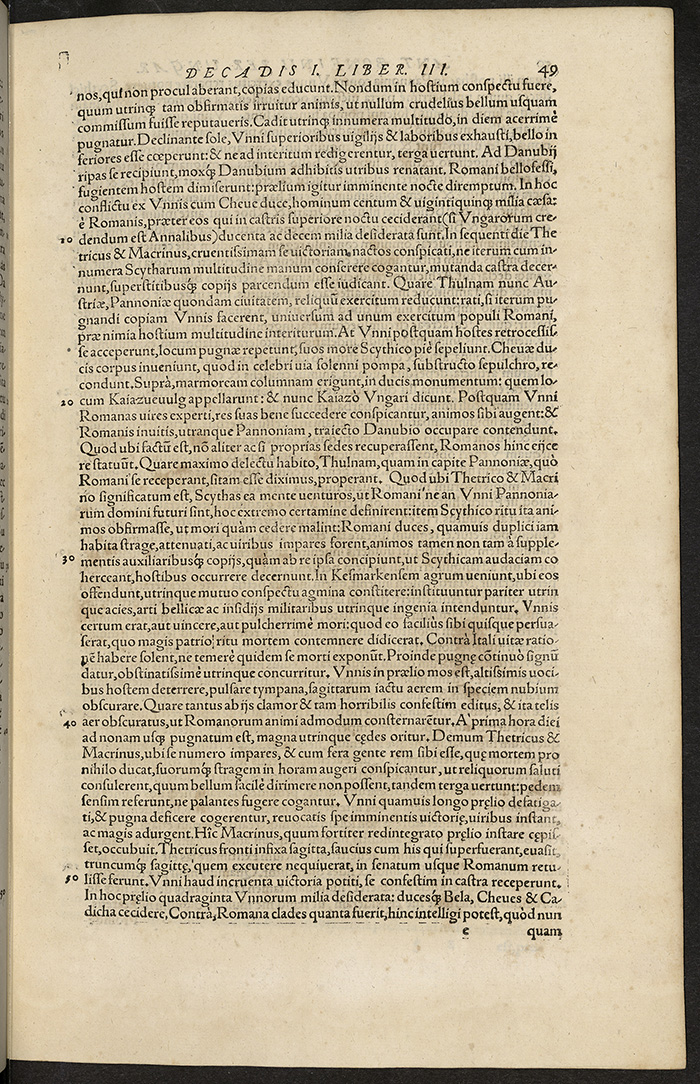 DECADIS I. LIBER. III. 49
nos, qui non procul aberant, copias educunt. Nondum in hostium conspectu fuere,
quum utrinqȝ tam obfirmatis irruitur animis, ut nullum crudelius bellum usquam
commissum fuisse reputaueris. Cadit utrinqȝ innumera multitudo, in diem acerrimè
pugnatur. Declinante sole, Vnni superioribus uigilijs & laboribus exhausti, bello in
feriores esse cœperunt: & ne ad interitum redigerentur, terga uertunt. Ad Danubij
ripas se recipiunt, moxqȝ Danubium adhibitis utribus renatant. Romani bello fessi,
fugientem hostem dimiserunt: prælium igitur imminente nocte diremptum. In hoc
conflictu ex Vnnis cum Cheue duce, hominum centum & uigintiquinqȝ milia cæsa:
è Romanis, præter eos qui in castris superiore noctu ceciderant (si Vngarorum cre-
10 dendum est Annalibus) ducenta ac decem milia desiderata sunt. In sequenti die The
tricus & Macrinus, cruentissimam se uictoriam nactos conspicati, ne iterum cum in-
numera Scytharum multitudine manum conserere cogantur, mutanda castra decer-
nunt, superstitibusqȝ copijs parcendum esse iudicant. Quare Thulnam nunc Au-
striæ, Pannoniæ quondam ciuitatem, reliquũ exercitum reducunt: rati, si iterum pu-
gnandi copiam Vnnis facerent, uniuersum ad unum exercitum populi Romani,
præ nimia hostium multitudine interiturum. At Vnni postquam hostes retrocessis-
se acceperunt, locum pugnæ repetunt, suos more Scythico piè sepeliunt. Cheuæ du-
cis corpus inueniunt, quod in celebri uia solenni pompa, substructo sepulchro, re-
condunt. Suprà, marmoream columnam erigunt, in ducis monumentum: quem lo-
20 cum Kaiazueuulg appellarunt: & nunc Kaiazò Vngari dicunt. Postquam Vnni
Romanas uires experti, res suas bene succedere conspicantur, animos sibi augent: &
Romanis inuitis, utranque Pannoniam, traiecto Danubio occupare contendunt.
Quod ubi factũ est, nõ aliter ac si proprias sedes recuperassent, Romanos hinc eijce
re statuũt. Quare maximo delectu habito, Thulnam, quam in capite Pannoniæ, quò
Romani se receperant, sitam esse diximus, properant. Quod ubi Thetrico & Macri
no significatum est, Scythas ea mente uenturos, ut Romani ne an Vnni Pannonia-
rum domini futuri sint, hoc extremo certamine definirent: item Scythico ritu ita ani-
mos obfirmasse, ut mori quàm cedere malint: Romani duces, quamuis duplici iam
habita strage, attenuati, ac uiribus impares forent, animos tamen non tam à supple-
30 mentis auxiliaribusqȝ copijs, quàm ab re ipsa concipiunt, ut Scythicam audaciam co
herceant, hostibus occurrere decernunt. In Kesmarkensem agrum ueniunt, ubi eos
offendunt, utrinque mutuo conspectu agmina constitere: instituuntur pariter utrin
que acies, arti bellicæ ac insidijs militaribus utrinque ingenia intenduntur. Vnnis
certum erat, aut uincere, aut pulcherrimè mori: quod eo facilius sibi quisque persua-
serat, quo magis patrio ritu mortem contemnere didicerat. Contrà Itali uitæ ratio-
nẽ habere solent, ne temerè quidem se morti exponũt. Proinde pugnę cõtinuò signũ
datur, obstinatissimè utrinque concurritur. Vnnis in prælio mos est, altissimis uoci-
bus hostem deterrere, pulsare tympana, sagittarum iactu aerem in speciem nubium
obscurare. Quare tantus ab ijs clamor & tam horribilis confestim editus, & ita telis
40 aer obscuratus, ut Romanorum animi admodum consternarẽtur. A' prima hora diei
ad nonam usqȝ pugnatum est, magna utrinque cędes oritur. Demum Thetricus &
Macrinus, ubi se numero impares, & cum fera gente rem sibi esse, quę mortem pro
nihilo ducat, suorumqȝ stragem in horam augeri conspicantur, ut reliquorum saluti
consulerent, quum bellum facilè dirimere non possent, tandem terga uertunt: pedem
sensim referunt, ne palantes fugere cogantur. Vnni quamuis longo pręlio defatiga-
ti, & pugna deficere cogerentur, reuocatis spe imminentis uictorię, uiribus instant,
ac magis adurgent. Hîc Macrinus, quum fortiter redintegrato pręlio instare cępis-
set, occubuit. Thetricus fronti infixa sagitta, saucius cum his qui superfuerant, euasit,
truncumqȝ sagittę, quem excutere nequiuerat, in senatum usque Romanum retu-
50 lisse ferunt. Vnni haud incruenta uictoria potiti, se confestim in castra receperunt.
In hoc pręlio quadraginta Vnnorum milia desiderata: ducesqȝ Bela, Cheues & Ca-
dicha cecidere. Contrà, Romana clades quanta fuerit, hinc intelligi potest, quòd nun
e quam